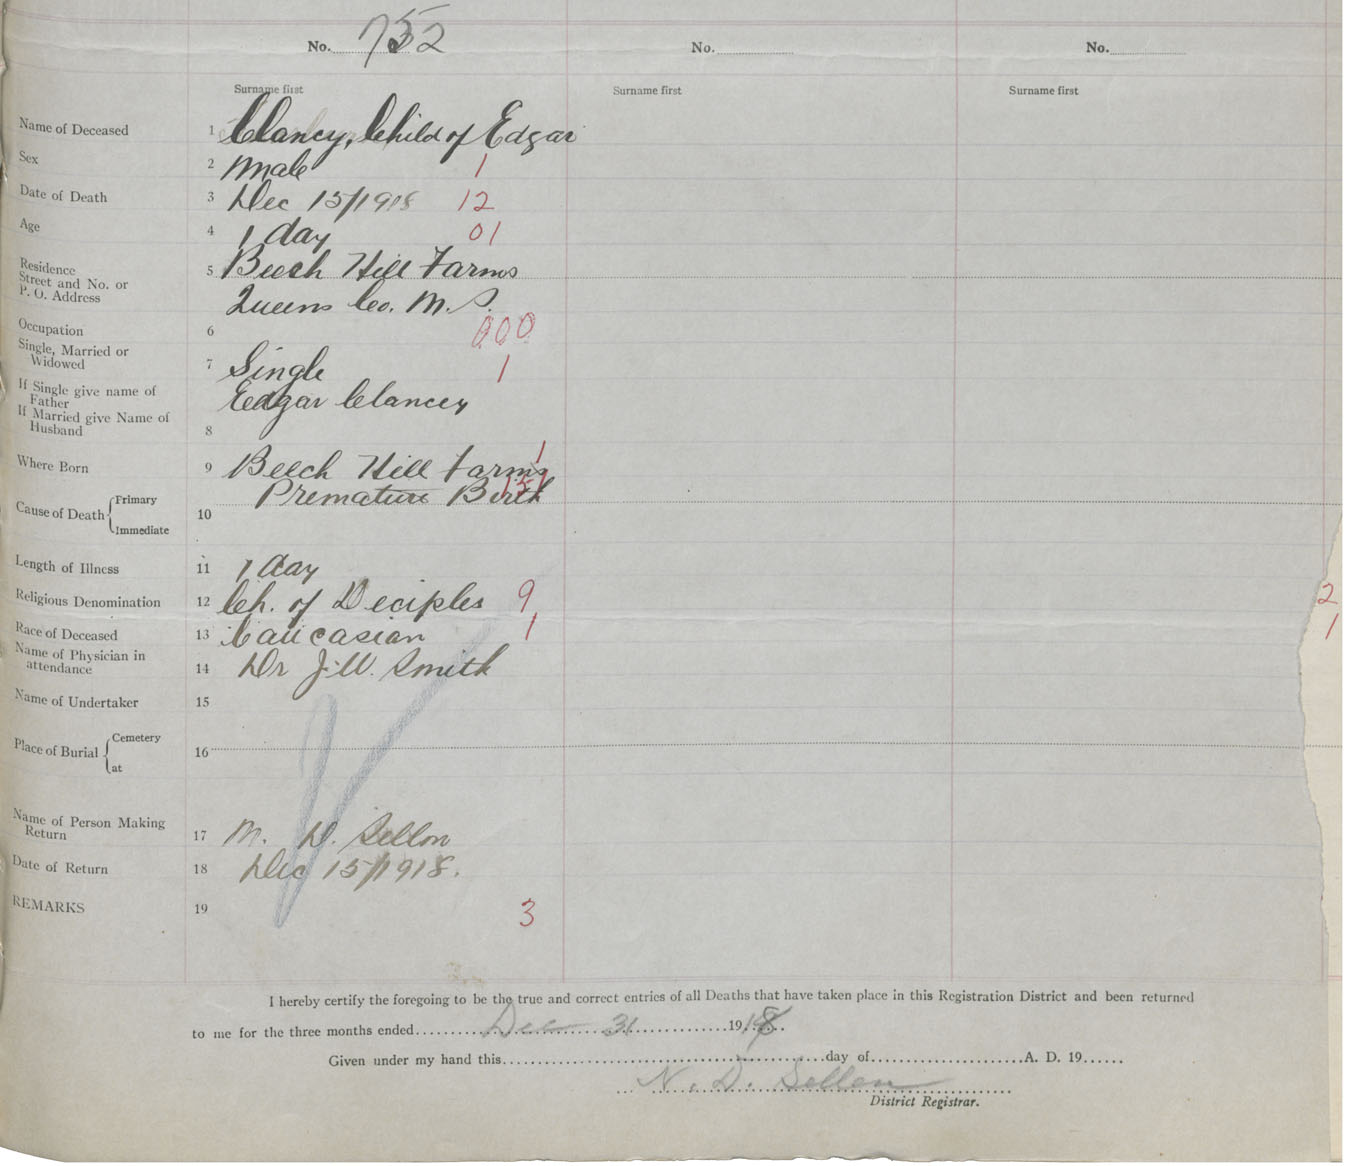 No. 752 No. No.
Surname first Surname first Surname first
Name of Deceased 1 Clancy, Child of Edgar
Sex 2 Male 1
Date of Death 3 Dec 15/1918 12
Age 4 1 day 01
Residence
Street and No. or 5 Beech Hill Farms
P. O. Address Queens Co. N. S.
Occupation 6 000
Single, Married or
Widowed 7 Single 1
If Single give name of
Father Edgar Clancey
If Married give Name of
Husband 8
Where Born 9 Beech Hill Farms 1
Primary Premature Birth 151
Cause of Death 10
Immediate
Length of Illness 11 1 day
Religious Denomination 12 Ch. of Deciples 9 2
Race of Deceased 13 Caucasian 1 1
Name of Physician in
attendance 14 Dr J. W. Smith
Name of Undertaker 15
Cemetery
Place of Burial 16
at
Name of Person Making
Return 17 N. D. Sellon
Date of Return 18 Dec 15/1918.
REMARKS 19 3
I hereby certify the foregoing to be the true and correct entries of all Deaths that have taken place in this Registration District and been returned
to me for the three months ended Dec 31 1918.
Given under my hand this day of A. D. 19
N. D. Sellon
District Registrar.